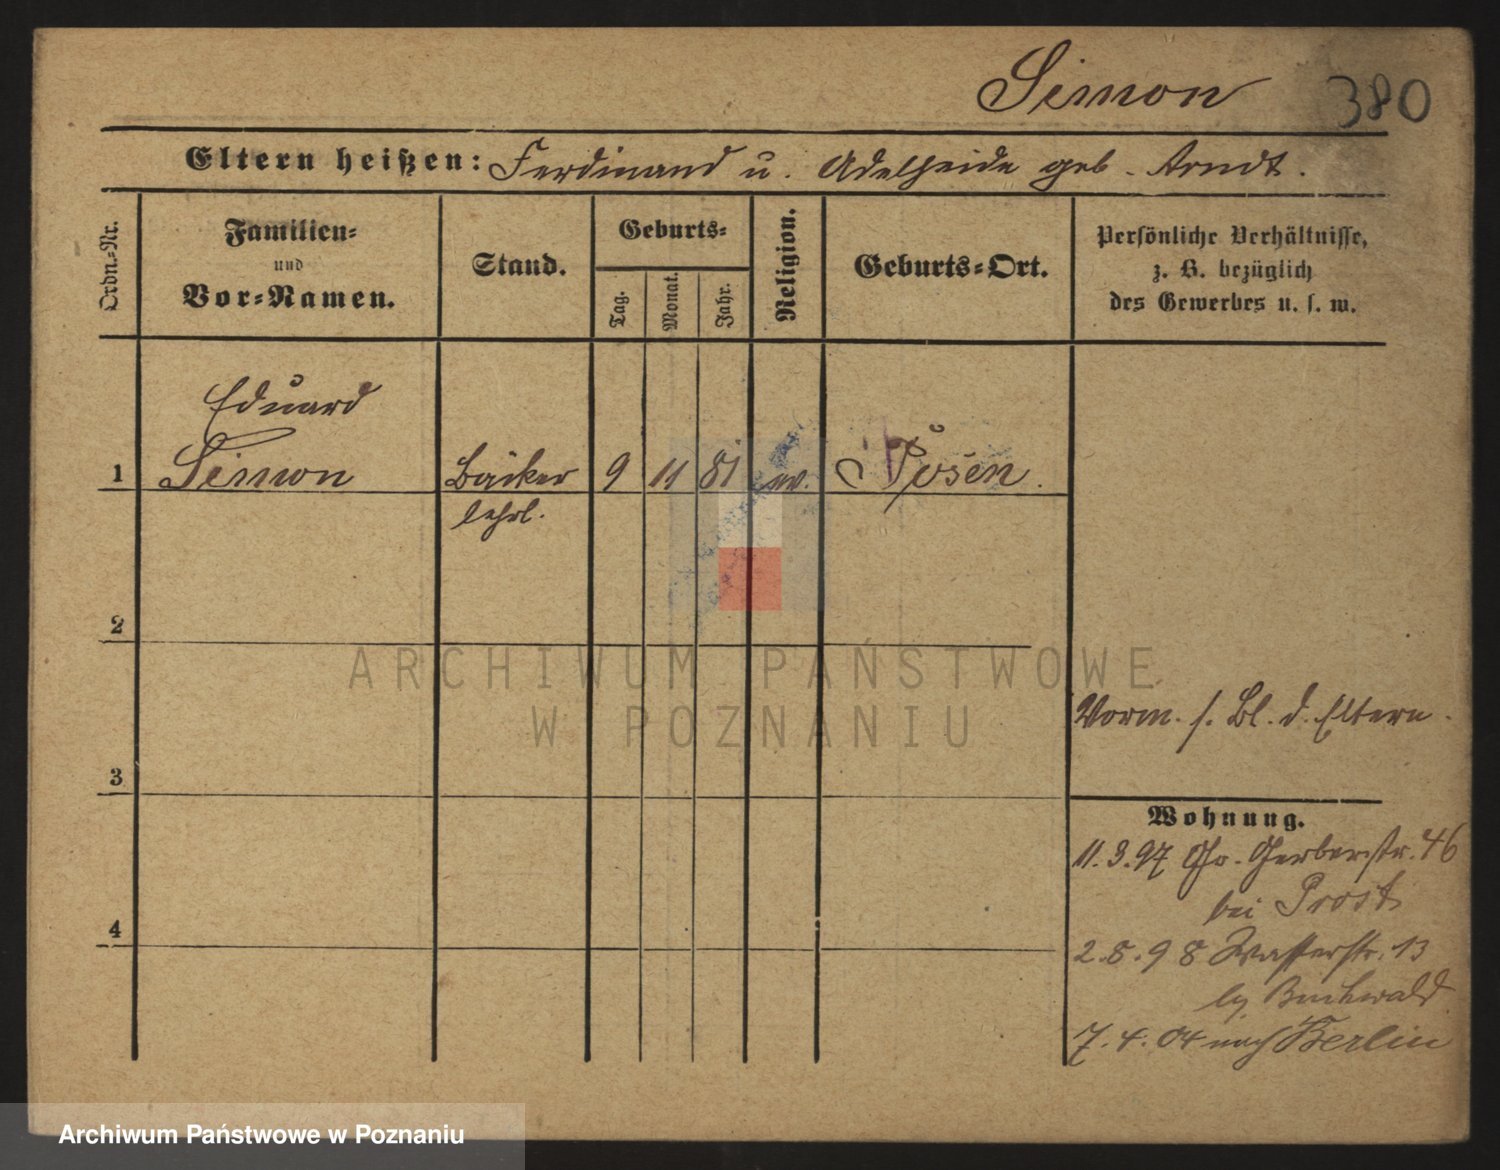 Simon 380
Eltern heißen: Ferdinand u. Adelheide geb. Arndt.
Ordn.-Nr.
Familien-
und
Vor-Namen.
Stand.
Geburts-
Tag.
Monat.
Jahr.
Religion.
Geburts-Ort.
Persönliche Verhältnisse,
z. B. bezüglich
des Gewerbes u. s. w.
Eduard
1 Simon Bäcker 9 11 81 ev. Posen.
lehrl.
2
3
4
Vorm. s. Bl. d. Eltern.
Wohnung.
11.3.97 Gr. Gerberstr. 46
bei Prost
2.8.98 Wasserstr. 13
by Buchwald
7.4.04 nach Berlin
ARCHIWUM PAŃSTWOWE
W POZNANIU
Archiwum Państwowe w Poznaniu